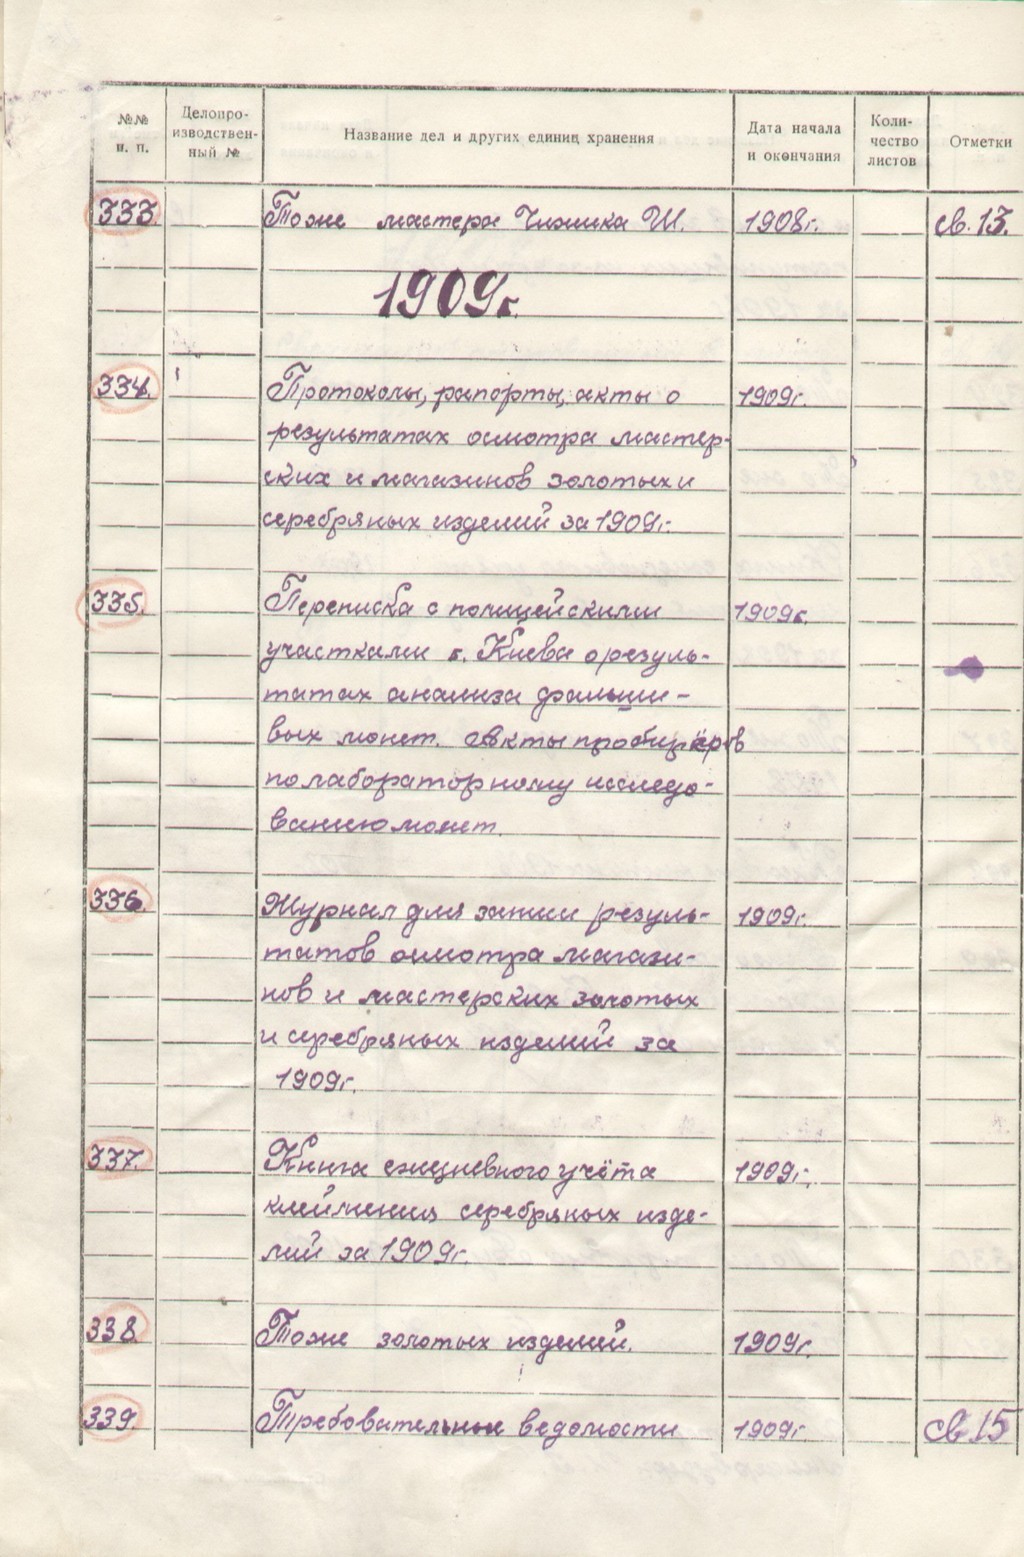 №№ п. п.
Делопро-
изводствен-
ный №
Название дел и других единиц хранения
Дата начала
и окончания
Коли-
чество
листов
Отметки
333. Тоже мастера Чижика Ш. 1908г. св. 13.
1909г.
334. Протоколы, рапорты, акты о 1909г.
результатах осмотра мастер-
ских и магазинов золотых и
серебряных изделий за 1909г.
335. Переписка с полицейскими 1909г.
участками г. Киева о резуль-
татах анализа фальши-
вых монет. Акты пробирёров
по лабораторному исследо-
ванию монет.
336. Журнал для записи резуль- 1909г.
татов осмотра магази-
нов и мастерских золотых
и серебряных изделий за
1909г.
337. Книга ежедневного учёта 1909г.
клеймения серебряных изде-
лий за 1909г.
338. Тоже золотых изделий. 1909г.
339. Требовательные ведомости 1909г. св 15